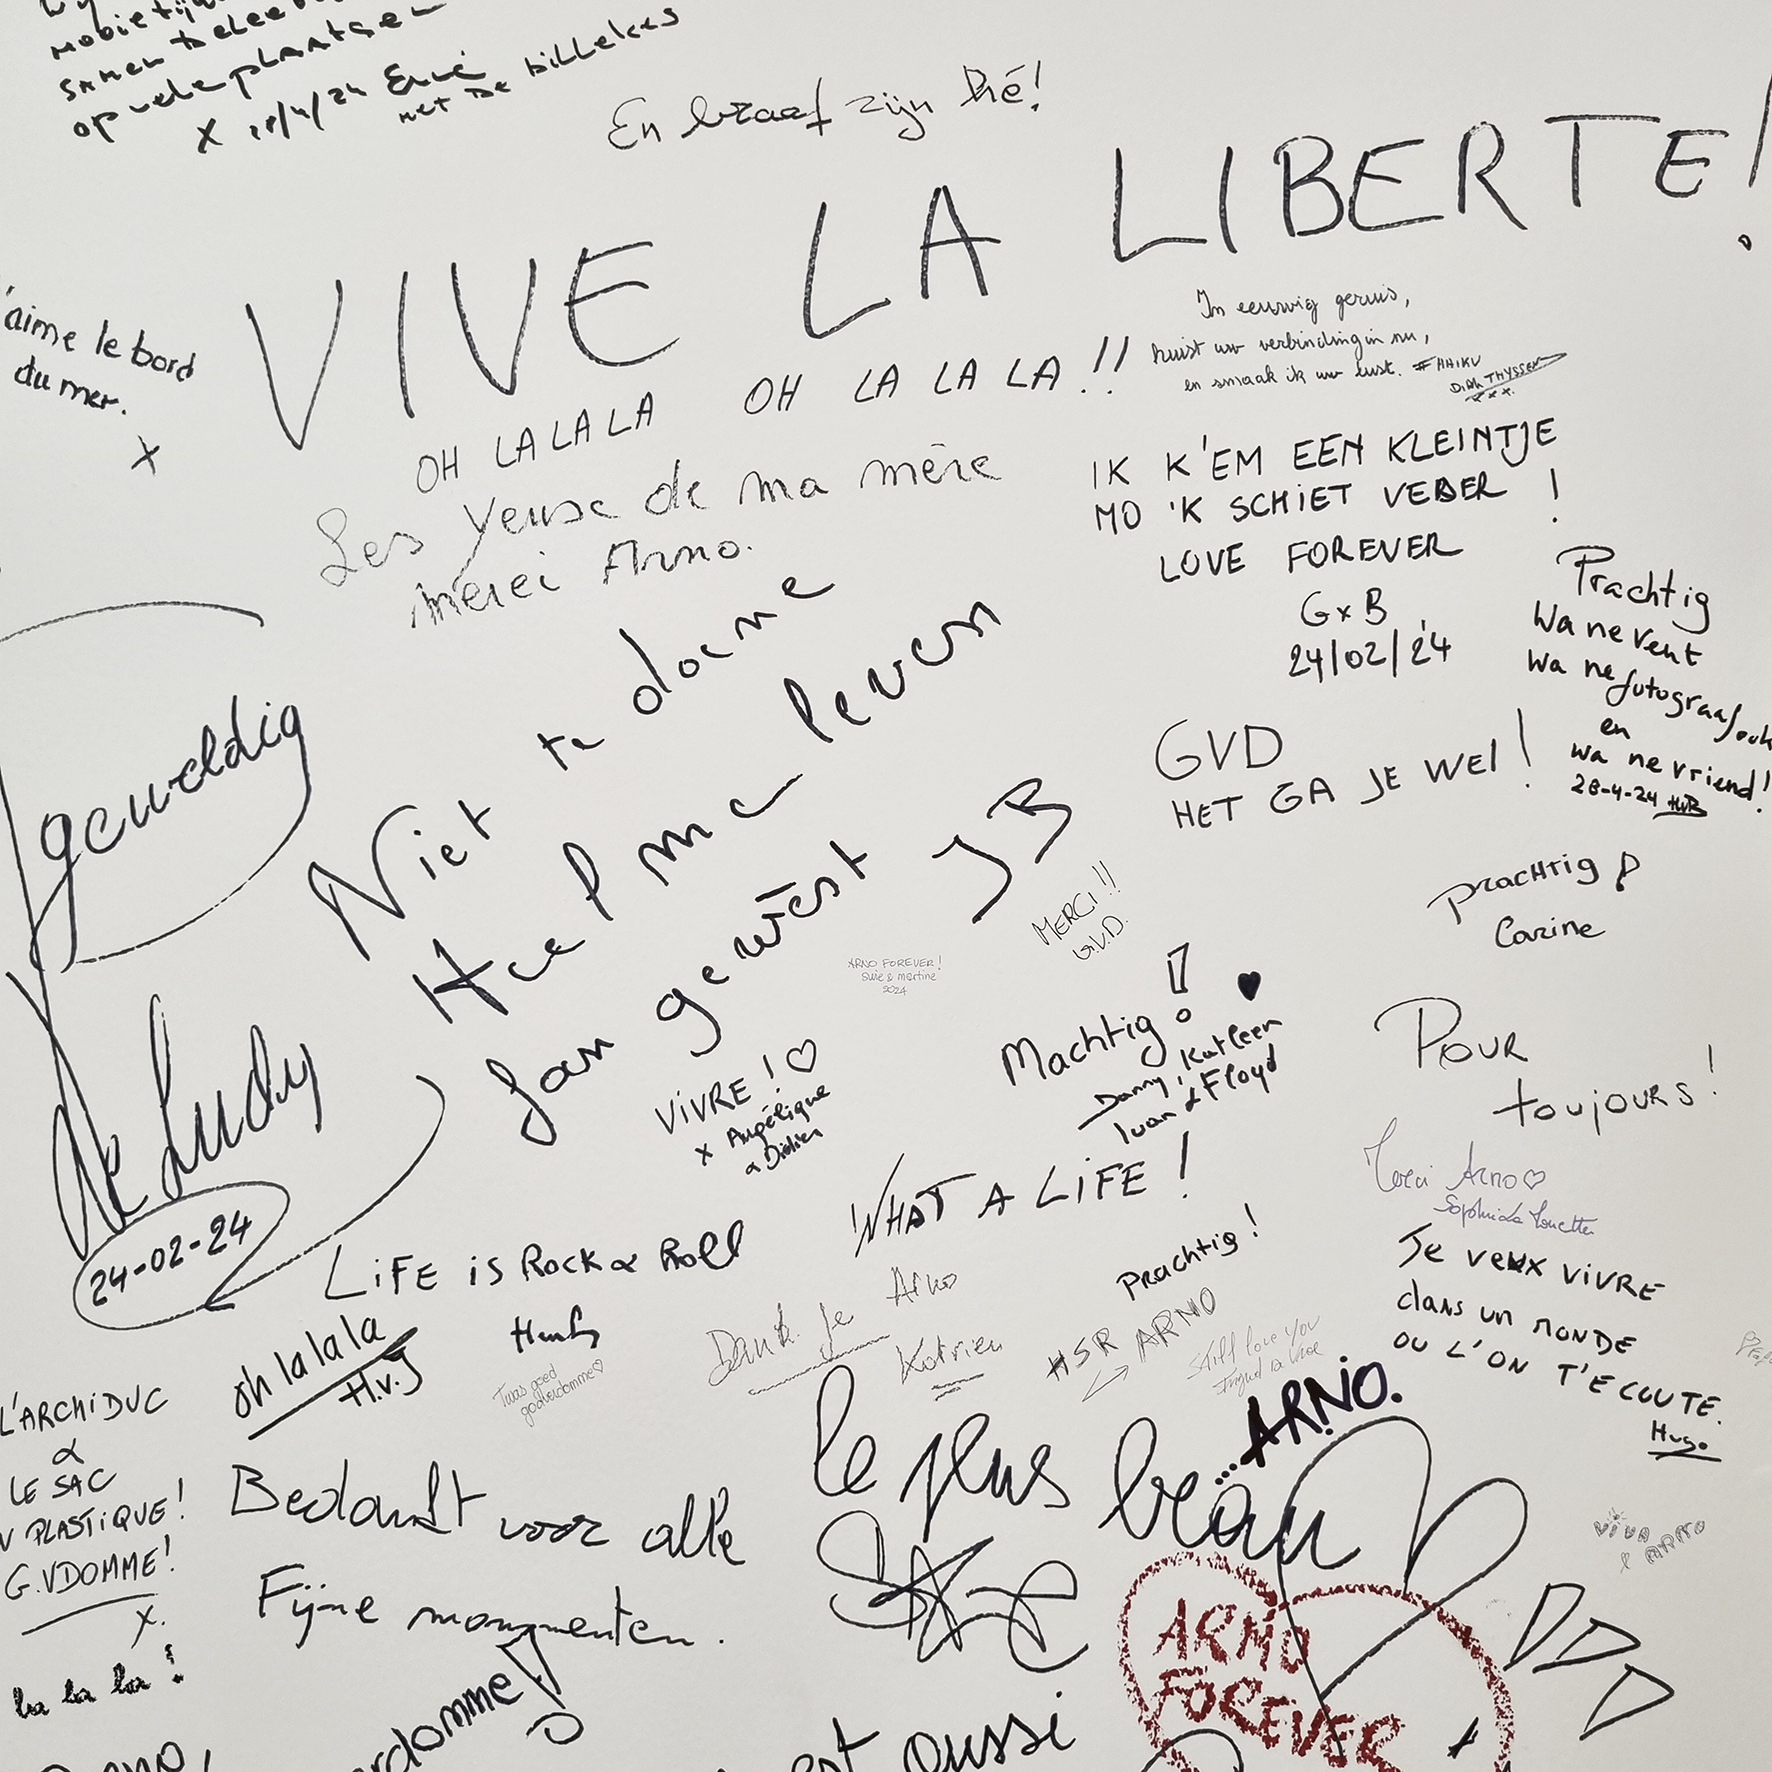 samen
op vele plaatsen
x 18/4/24
met de killekes
En braaf zijn hé!
VIVE LA LIBERTE!
'aime le bord
du mer.
x
OH LA LA LA OH LA LA LA!!
In eeuwig geruis,
kuist uw verbinding in nu,
en smaak ik uw kust. #HAIKU
DIRK THYSSEN
xxx.
Les Yeuse de ma mère
merci Arno.
IK K'EM EEN KLEINTJE
MO 'K SCHIET VEBER !
LOVE FOREVER
GxB
24/02/24
Prachtig
Wa ne vent
wa ne fotograaf ook
en
wa ne vriend!
28-4-24 HVB
geweldig
de Ludy
24-02-24
Niet te doene
Heel me leven
fan gewest JB
GVD
HET GA JE WEL!
PRACHTIG !
Carine
MERCI!!
G.V.D.
ARNO FOREVER!
Suie & martine
2024
Machtig!
Danny, Katleen
Ivan & Floyd
VIVRE! ♡
x Angélique
& Didier
POUR
toujours!
WHAT A LIFE!
Merci Arno ♡
LIFE is ROCK & Roll
Prachtig!
Je veux VIVRE
dans un MONDE
OU L'ON T'ECOUTE.
Hugo
oh la la la
H.v.J
Twas goed
godverdomme ♡
Dank je Arno
Katrien
#SR ARNO
Still love you
L'ARCHIDUC
&
LE SAC
PLASTIQUE!
G.VDOMME!
x.
la la la!
Bedankt voor alle
Fijne momenten.
le plus beau
...ARNO.
VIVA
ARNO
ARNO
FOREVER
rdomme!
est aussi